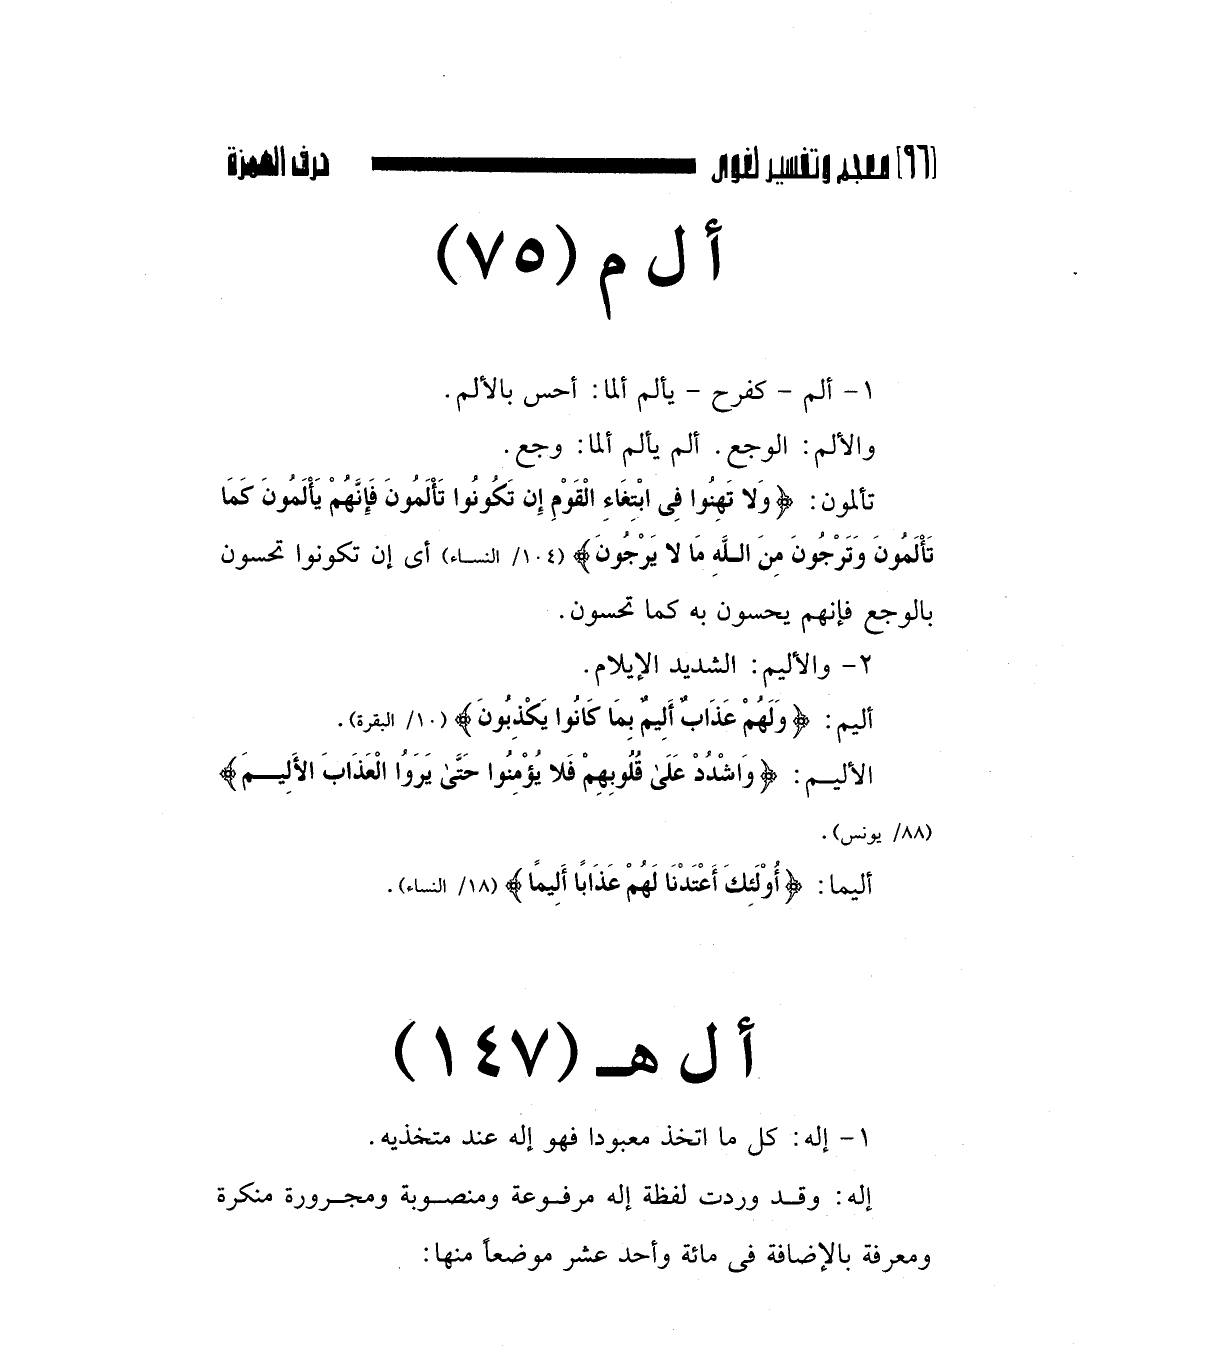 [٩٦] معجم وتفسير لغوى حرف الهمزة
أ ل م (٧٥)
١- ألم - كفرح - يألم ألما: أحس بالألم.
والألم: الوجع. ألم يألم ألما: وجع.
تألمون: ﴿وَلا تَهِنُوا فِى ابْتِغَاءِ الْقَوْمِ إِن تَكُونُوا تَأْلَمُونَ فَإِنَّهُمْ يَأْلَمُونَ كَمَا
تَأْلَمُونَ وَتَرْجُونَ مِنَ اللَّهِ مَا لا يَرْجُونَ﴾ (١٠٤/ النساء) أى إن تكونوا تحسون
بالوجع فإنهم يحسون به كما تحسون.
٢- والأليم: الشديد الإيلام.
أليم: ﴿وَلَهُمْ عَذَابٌ أَلِيمٌ بِمَا كَانُوا يَكْذِبُونَ﴾ (١٠/ البقرة).
الأليم: ﴿وَاشْدُدْ عَلَىٰ قُلُوبِهِمْ فَلا يُؤْمِنُوا حَتَّىٰ يَرَوُا الْعَذَابَ الأَلِيمَ﴾
(٨٨/ يونس).
أليما: ﴿أُوْلَئِكَ أَعْتَدْنَا لَهُمْ عَذَابًا أَلِيمًا﴾ (١٨/ النساء).
أ ل هـ (١٤٧)
١- إله: كل ما اتخذ معبودا فهو إله عند متخذيه.
إله: وقد وردت لفظة إله مرفوعة ومنصوبة ومجرورة منكرة
ومعرفة بالإضافة فى مائة وأحد عشر موضعاً منها: